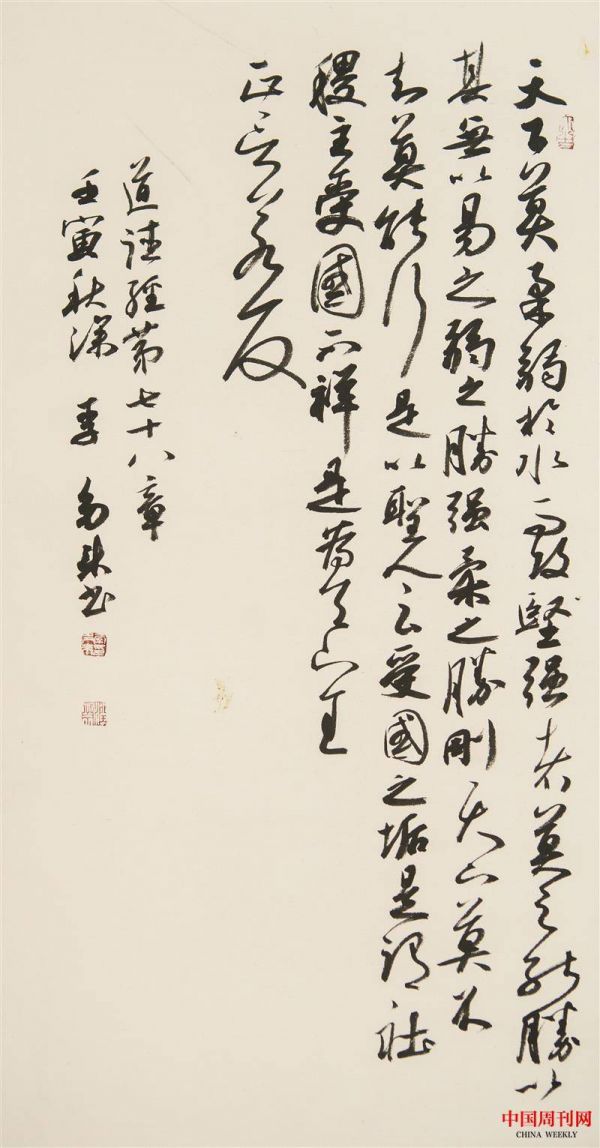 天下莫柔弱於水而攻堅强者莫之能勝以
其無以易之弱之勝强柔之勝剛天下莫不
知莫能行是以聖人云受國之垢是謂社
稷主受國不祥是為天下王
正言若反
道德經第七十八章
壬寅秋深 李 书
中国周刊网
CHINA WEEKLY